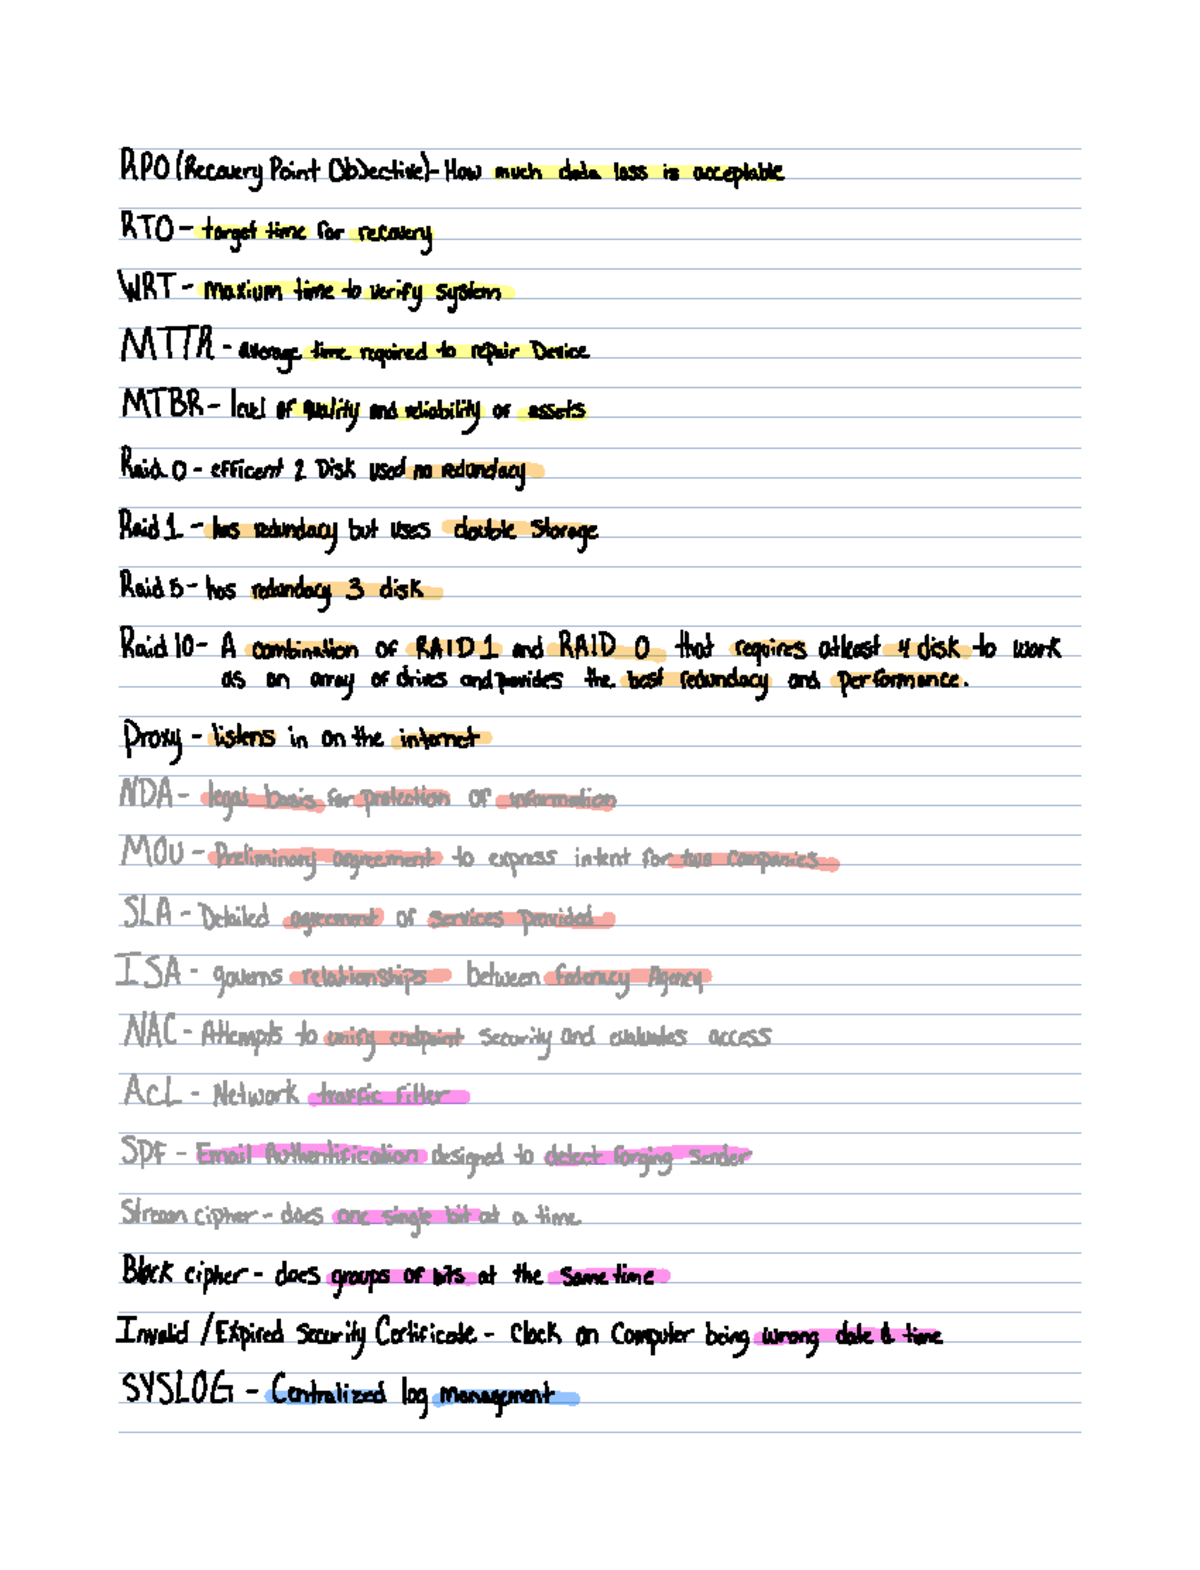 RPO (Recovery Point Objective) - How much data loss is acceptable
RTO - target time for recovery
WRT - maxium time to verify system
MTTR - average time required to repair Device
MTBR - level of quality and reliability of assets
Raid 0 - efficent 2 Disk used no redundacy
Raid 1 - has redundacy but uses double Storage
Raid 5 - has redundacy 3 disk
Raid 10 - A combination of RAID 1 and RAID 0 that requires atleast 4 disk to work
as an array of drives and provides the best redundacy and performance.
Proxy - listens in on the internet
NDA - legal basis for protection of information
MOU - Preliminary agreement to express intent for two companies
SLA - Detailed agreement of services provided
ISA - governs relationships between federacy Agency
NAC - Attempts to unify endpoint security and evaluates access
ACL - Network traffic filter
SPF - Email Authentification designed to detect forging sender
Stream cipher - does one single bit at a time
Block cipher - does groups of bits at the same time
Invalid / Expired Security Certificate - Clock on Computer being wrong date & time
SYSLOG - Centralized log management